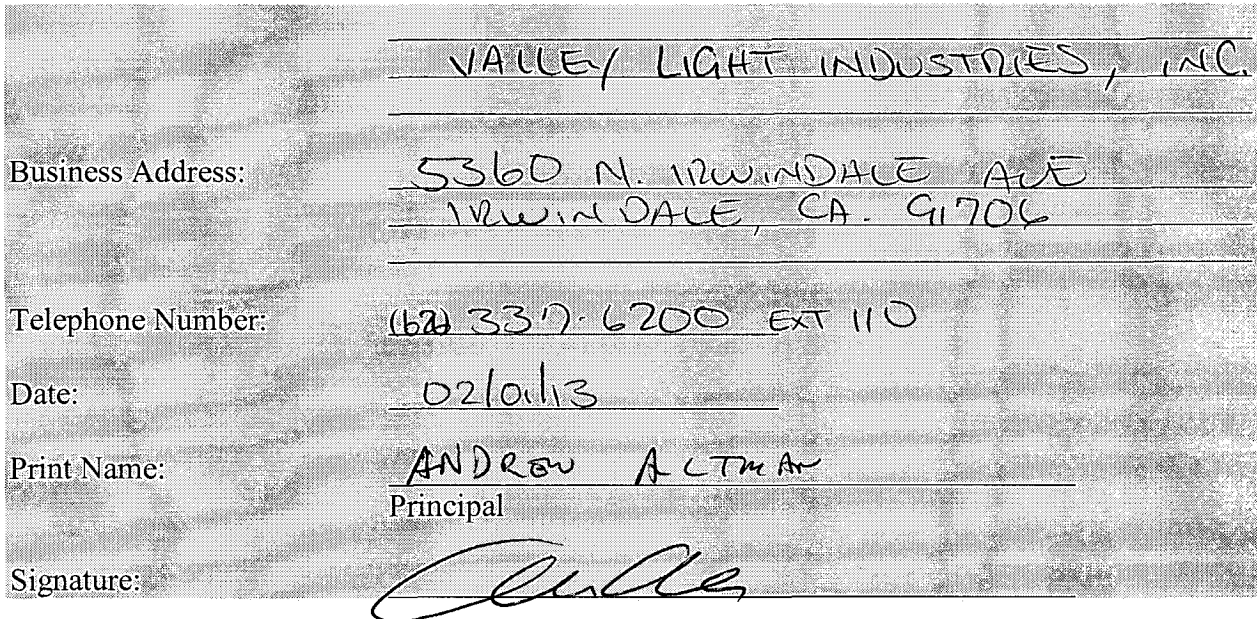 VALLEY LIGHT INDUSTRIES, INC.
Business Address: 5360 N. IRWINDALE AVE
IRWINDALE, CA. 91706
Telephone Number: (626) 337-6200 EXT 110
Date: 02/01/13
Print Name: ANDREW ALTMAN
Principal
Signature: